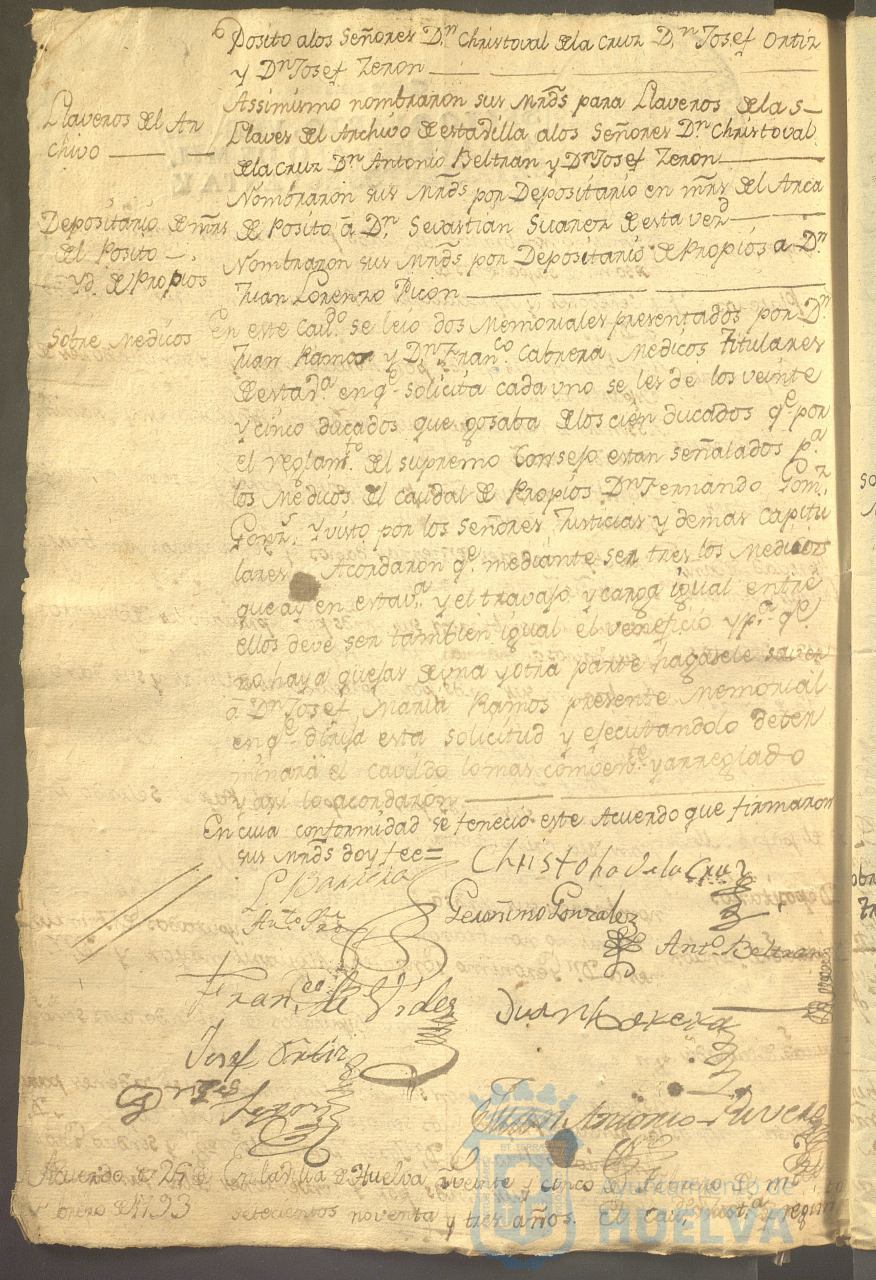 Posito alos Señores Dn. Christoval dela Cruz Dn. Josef Ortiz
y Dn Josef Zeron
Llaveros del Ar
chivo
Assimismo nombraron sus Mrds para Llaveros de las
Llaves del Archivo de esta villa alos Señores Dn. Christoval
dela Cruz Dn. Antonio Beltran y Dn Josef Zeron
Depositario de mrs
del Posito
Yd. de Propios
Nombraron sus Mrds por Depositario en mrs del Arca
de Posito á Dn. Sevastian Suarez de esta vezd
Nombraron sus Mrds por Depositario de Propios a Dn.
Juan Lorenzo Picon
Sobre Medicos
En este cavdo. se leio dos Memoriales presentados por Dn
Juan Ramos y Dn. Franco. Cabrera Medicos Titulares
de esta va. en qe. solicita cada uno se les de los veinte
y cinco ducados que gosaba delos cien ducados qe. por
el reglamto. del supremo Consejo estan señalados pa.
los Medicos del caudal de Propios Dn. Fernando Gomz.
Gonzs. Y visto por los Señores Justicias y demas capitu
lares Acordaron qe. mediante ser tres los Medicos
que ay en esta va. y el travajo y carga igual entre
ellos deve ser tambien igual el veneficio y pa. qe.
no haya quejas de una y otra parte hagasele saver
a Dn Josef Maria Ramos presente Memorial
en qe. dirija esta solicitud y ejecutandolo deter
minará el cavildo lo mas combente. y arreglado
y asi lo acordaron
En cuia conformidad se fenecio este Acuerdo que firmaron
sus Mrds doy fee=
Christoval de la Cruz
L. Barrera
Geronimo Gonzalez
Anto. Beltran
Franco. de Vides
Juan
Josef Ortiz
Zeron
Juan Antonio
Acuerdo de 25 de
enero de 1793
En la villa de Huelva veinte y cinco de Henero de mil
setecientos noventa y tres años. El cav. Just.a y regim
Ayuntamiento de
HUELVA